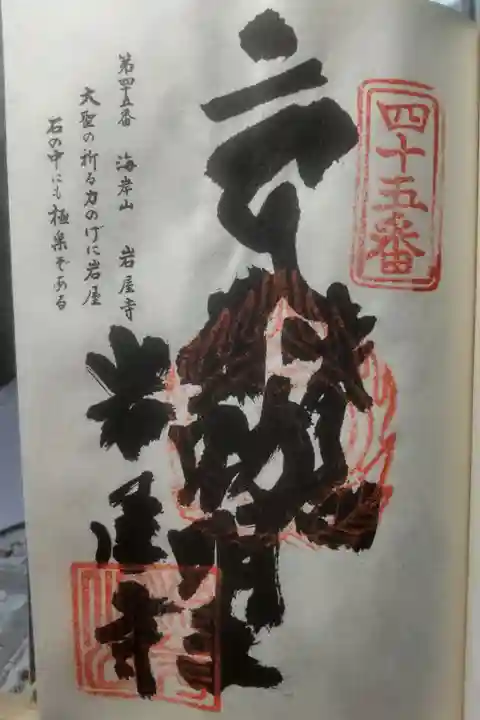 四十五番
不動明王
岩屋寺
第四十五番 海岸山 岩屋寺
大聖の祈る力のげに岩屋
石の中にも極楽ぞある